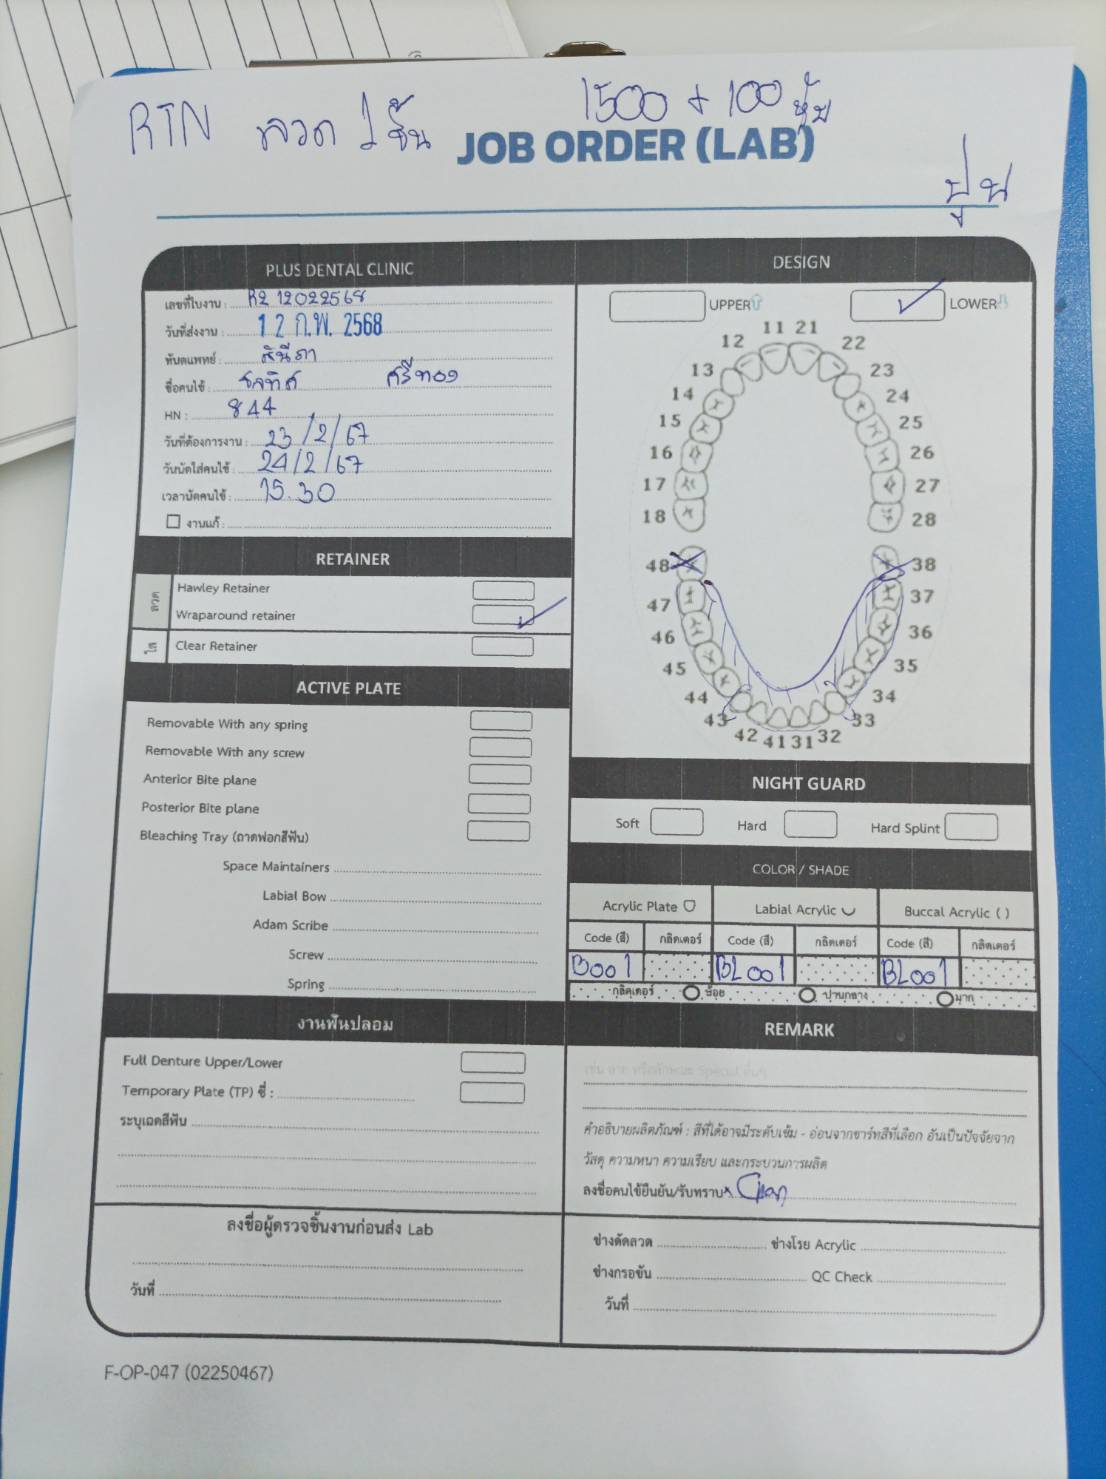 RTN ลวด 1 ชิ้น
1500 + 100
JOB ORDER (LAB)
ปูน
PLUS DENTAL CLINIC
เลขที่ใบงาน : R2 12022568
วันที่ส่งงาน : 12 ก.พ. 2568
ทันตแพทย์ :
ชื่อคนไข้ : ศรีทอง
HN : 844
วันที่ต้องการงาน : 23/2/67
วันนัดใส่คนไข้ : 24/2/67
เวลานัดคนไข้ : 15.30
งานแก้ :
RETAINER
ลวด
Hawley Retainer
Wraparound retainer
ใส
Clear Retainer
ACTIVE PLATE
Removable With any spring
Removable With any screw
Anterior Bite plane
Posterior Bite plane
Bleaching Tray (ถาดฟอกสีฟัน)
Space Maintainers
Labial Bow
Adam Scribe
Screw
Spring
งานฟันปลอม
Full Denture Upper/Lower
Temporary Plate (TP) ซี่ :
ระบุเฉดสีฟัน
ลงชื่อผู้ตรวจชิ้นงานก่อนส่ง Lab
วันที่
DESIGN
UPPER
LOWER
11 21
12 22
13 23
14 24
15 25
16 26
17 27
18 28
48 38
47 37
46 36
45 35
44 34
43 33
42 41 31 32
NIGHT GUARD
Soft Hard Hard Splint
COLOR / SHADE
Acrylic Plate Labial Acrylic Buccal Acrylic ( )
Code (สี) กลิตเตอร์ Code (สี) กลิตเตอร์ Code (สี) กลิตเตอร์
B001 BL001 BL001
กลิตเตอร์ น้อย ปานกลาง มาก
REMARK
คำอธิบายผลิตภัณฑ์ : สีที่ได้อาจมีระดับเข้ม - อ่อนจากชาร์ทสีที่เลือก อันเป็นปัจจัยจาก
วัสดุ ความหนา ความเรียบ และกระบวนการผลิต
ลงชื่อคนไข้ยืนยัน/รับทราบ
ช่างดัดลวด ช่างโรย Acrylic
ช่างกรอขัน QC Check
วันที่
F-OP-047 (02250467)